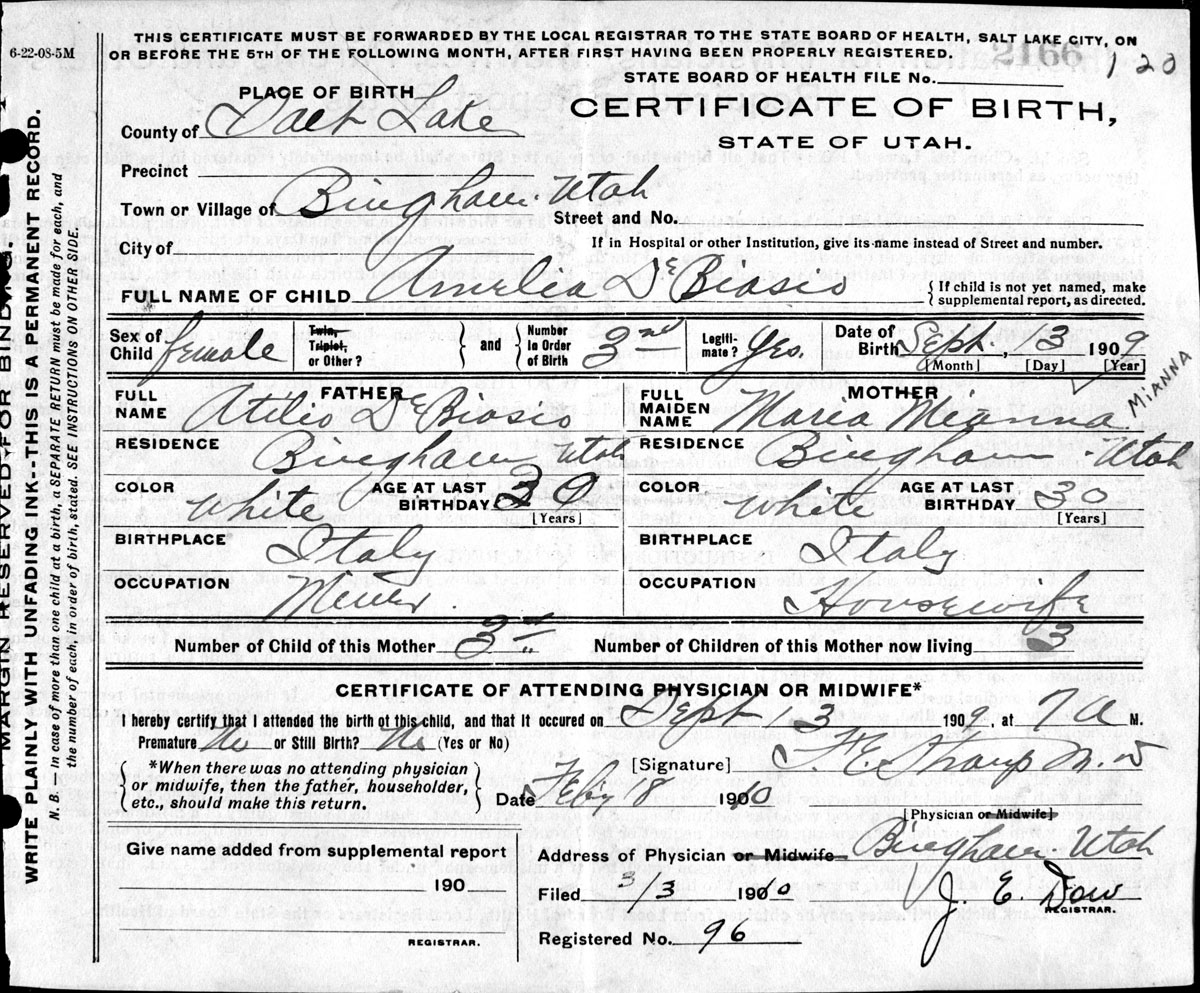 6-22-08-5M
THIS CERTIFICATE MUST BE FORWARDED BY THE LOCAL REGISTRAR TO THE STATE BOARD OF HEALTH, SALT LAKE CITY, ON
OR BEFORE THE 5TH OF THE FOLLOWING MONTH, AFTER FIRST HAVING BEEN PROPERLY REGISTERED.
2166
120
STATE BOARD OF HEALTH FILE No.
PLACE OF BIRTH
CERTIFICATE OF BIRTH,
STATE OF UTAH.
County of Salt Lake
Precinct
Town or Village of Bingham Utah
Street and No.
City of
If in Hospital or other Institution, give its name instead of Street and number.
FULL NAME OF CHILD Amelia De Biasio
If child is not yet named, make
supplemental report, as directed.
Sex of Child female
Twin, Triplet, or Other?
and
Number in Order of Birth 3rd
Legitimate? Yes.
Date of Birth Sept. 13 1909
[Month] [Day] [Year]
FATHER
FULL NAME Atilio De Biasio
RESIDENCE Bingham Utah
COLOR White
AGE AT LAST BIRTHDAY 39
[Years]
BIRTHPLACE Italy
OCCUPATION Miner.
MOTHER
FULL MAIDEN NAME Maria Mianna
MiANNA
RESIDENCE Bingham Utah
COLOR White
AGE AT LAST BIRTHDAY 30
[Years]
BIRTHPLACE Italy
OCCUPATION Housewife
Number of Child of this Mother 3rd
Number of Children of this Mother now living 3
CERTIFICATE OF ATTENDING PHYSICIAN OR MIDWIFE*
I hereby certify that I attended the birth of this child, and that it occured on Sept 13 1909, at 7 A M.
Premature No or Still Birth? No (Yes or No)
*When there was no attending physician
or midwife, then the father, householder,
etc., should make this return.
[Signature] F. E. Straup M. D
Date Feby 18 1910
[Physician or Midwife]
Give name added from supplemental report
190
REGISTRAR.
Address of Physician or Midwife Bingham Utah
Filed 3/3 1910
J. E. Dow
REGISTRAR.
Registered No. 96
MARGIN RESERVED FOR BINDING.
WRITE PLAINLY WITH UNFADING INK--THIS IS A PERMANENT RECORD.
N. B. — In case of more than one child at a birth, a SEPARATE RETURN must be made for each, and
the number of each, in order of birth, stated. SEE INSTRUCTIONS ON OTHER SIDE.